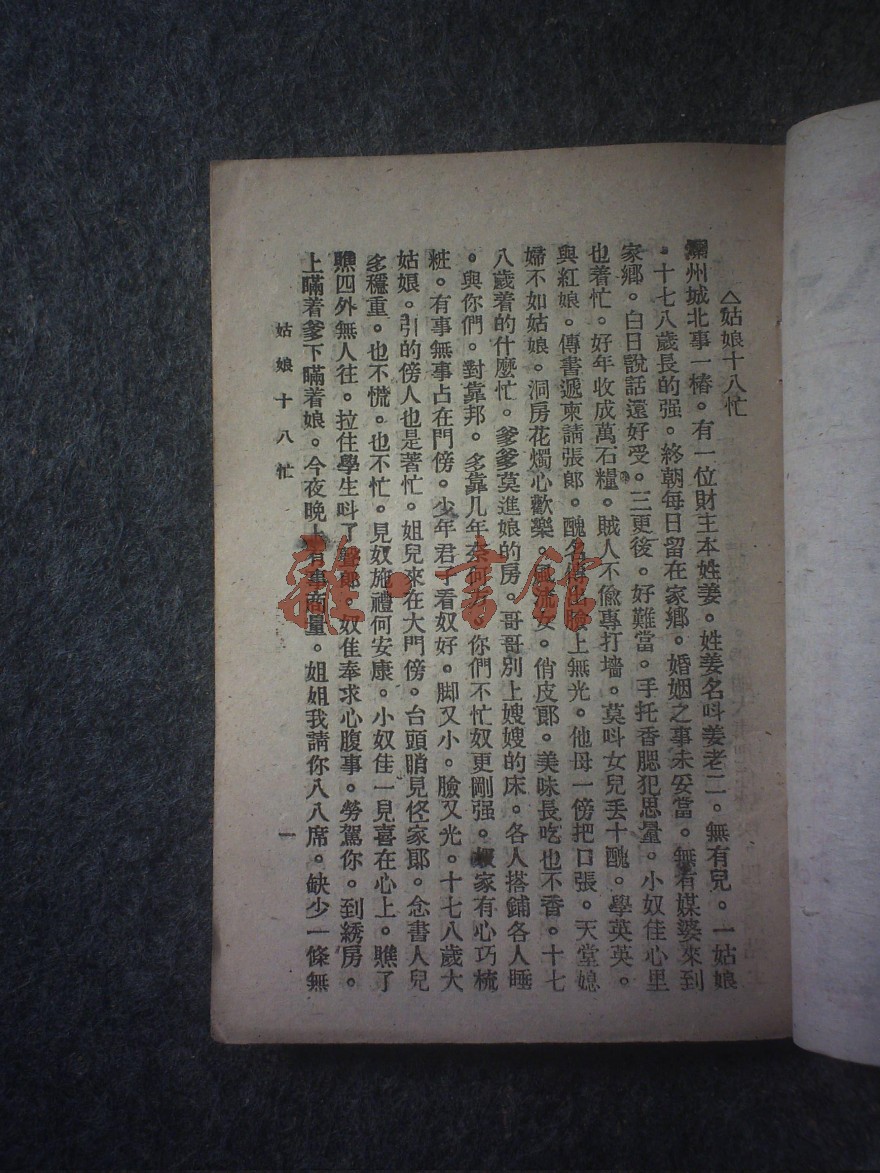 △姑娘十八忙
州城北事一樁。有一位財主本姓姜。姓姜名呌姜老二。無有兒。一姑娘
。十七八歲長的强。終朝每日留在家鄉。婚姻之事未妥當。無有媒婆來到
家鄉。白日說話還好受。三更後。好難當。手托香腮犯思量。小奴佳心里
也着忙。好年收成萬石糧。賊人不偸專打墻。莫呌女兒丟十醜。學英英。
與紅娘。傳書遞柬請張郎。醜名傳出臉上無光。他母一傍把口張。天堂媳
婦不如姑娘。洞房花燭心歡樂。風流女。俏皮郎。美味長吃也不香。十七
八歲着的什麼忙。爹爹莫進娘的房。哥哥別上嫂嫂的床。各人搭鋪各人睡
。與你們。對靠邦。多靠几年奈何方。你們不忙奴更剛强。奴家有心巧梳
粧。有事無事占在門傍。少年君子看奴好。脚又小。臉又光。十七八歲大
姑娘。引的傍人也是著忙。姐兒來在大門傍。台頭睄見俇家郎。念書人兒
多穩重。也不慌。也不忙。見奴施禮何安康。小奴佳一見喜在心上。瞧了
瞧四外無人往。拉住學生呌了聲郎。奴佳奉求心腹事。勞駕你。到綉房。
上瞞着爹下瞞着娘。今夜晚上有事商量。姐姐我請你八八席。缺少一條無
姑娘十八忙
一
雜·書館